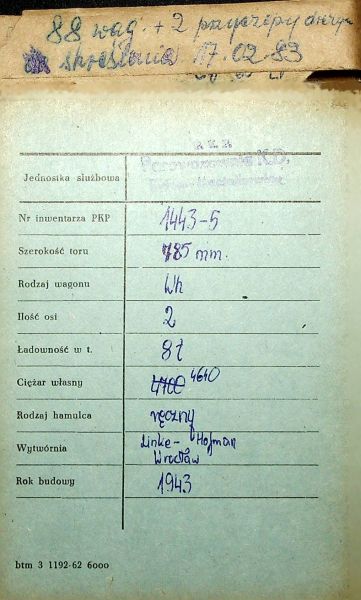 88 wag. + 2 przyczepy
skreślenia 17.02.83
P K P
Parowozownia K.D.
Jednostka służbowa
Nr inwentarza PKP 1443-5
Szerokość toru 785 mm.
Rodzaj wagonu Wh
Ilość osi 2
Ładowność w t. 8t
Ciężar własny 4700 4640
Rodzaj hamulca ręczny
Wytwórnia Linke-Hofman
Wrocław
Rok budowy 1943
btm 3 1192-62 6000